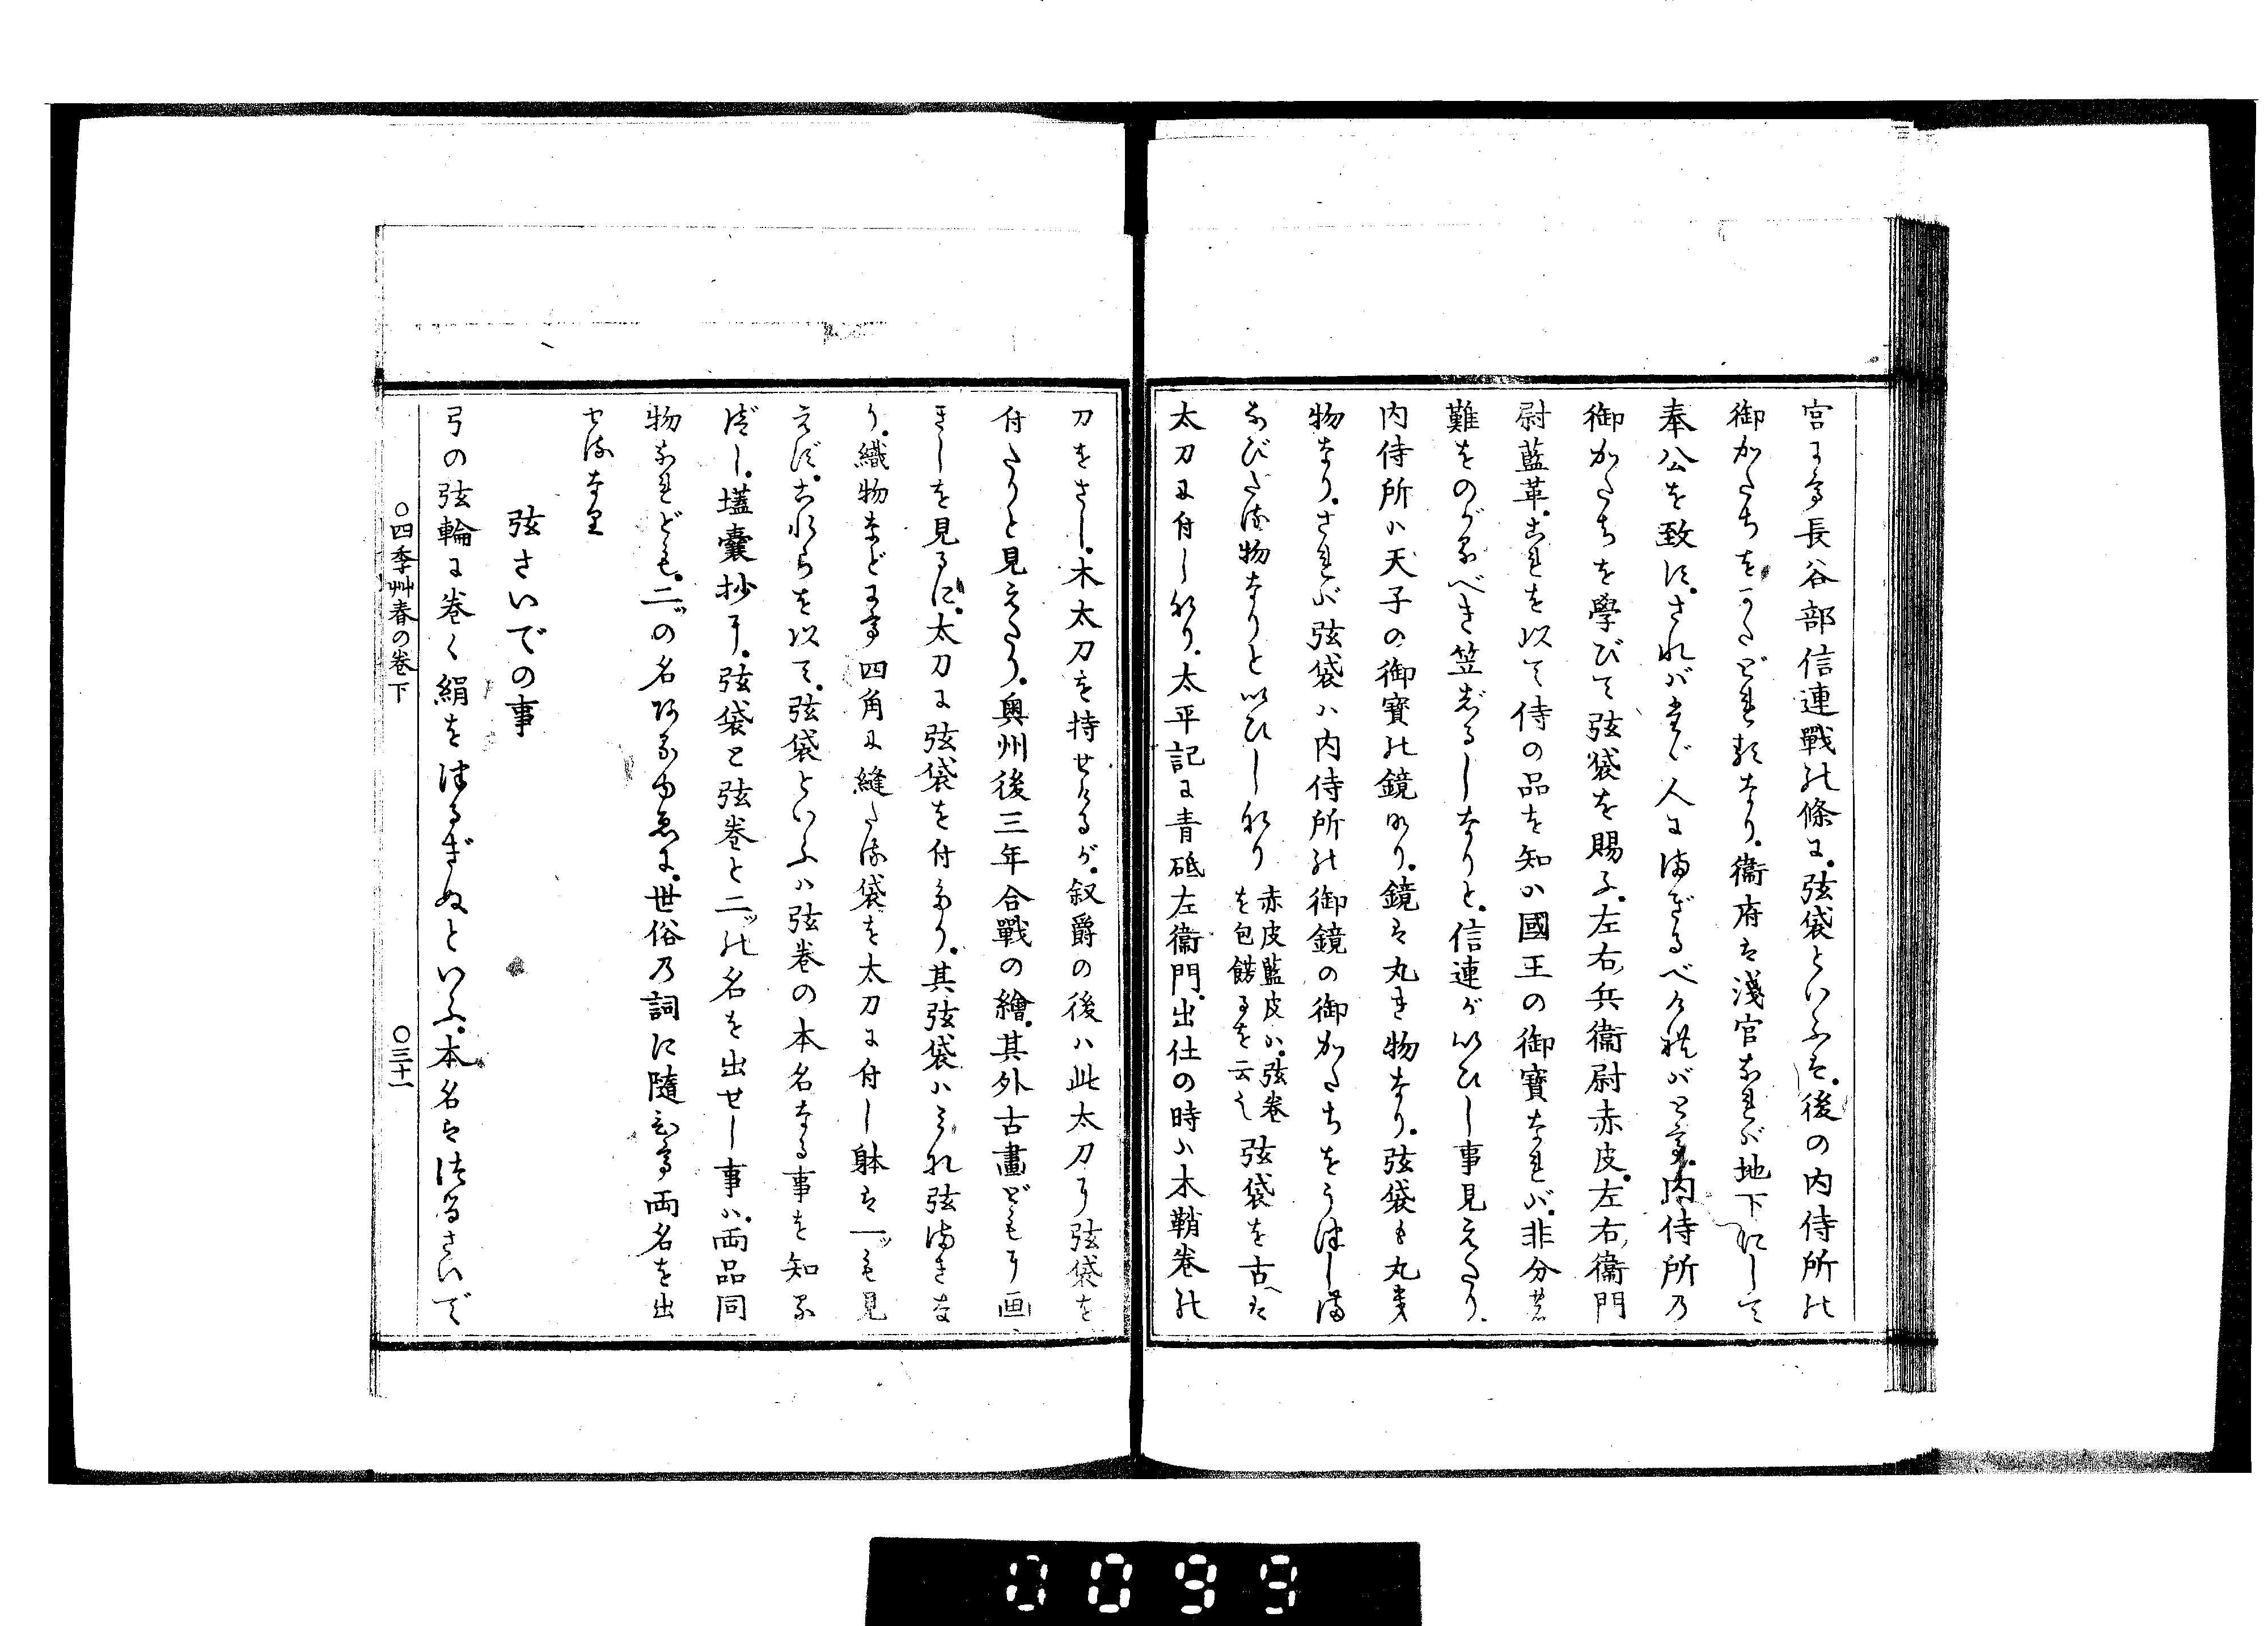 宮にて長谷部信連戰の條に。弦袋といふは。後の内侍所の
御かたちをかたどれる なり。衞府は淺官なれバ地下にして
奉公を致す。されバたゞ人にまぎるべけれバとて。内侍所の
御かたちを學びて弦袋を賜ふ。左右兵衞尉赤皮。左右衞門
尉藍革。これを以て侍の品を知ル國王の御寶なれバ。非分の
難をのがるべき笠じるしなりと。信連が以ひし事見えたり。
内侍所ハ天子の御寶の鏡なり。鏡は丸き物なり。弦袋も丸き
物なり。されバ弦袋ハ内侍所の御鏡の御かたちをうつしま
なびたる物なりと以ひしなり 赤皮藍皮ハ。弦巻
を包 るを云也 弦袋を古へは
太刀に付しなり。太平記に青砥左衞門。出仕の時ハ木鞘巻の
刀をさし。木太刀を持せけるが。叙爵の後ハ此太刀に弦袋を
付たりと見えたり。奥州後三年合戰の繪。其外古畫どもに画
きしを見るに。太刀に弦袋を付たり。其弦袋ハみな弦まきな
り。織物などにて四角に縫たる袋を太刀に付し躰は一ッも見
えず。これらを以て。弦袋といふハ弦巻の本名なる事を知る
べし。壒囊抄に。弦袋と弦巻と二ッの名を出せし事ハ。両品同
物なれども。二ッの名あるゆゑに。世俗乃詞に隨ひて両名を出
せるなり
弦さいでの事
弓の弦輪に巻く絹をつるぎぬといふ。本名はつるさいで
○四季艸春の巻下
○三十一
0099